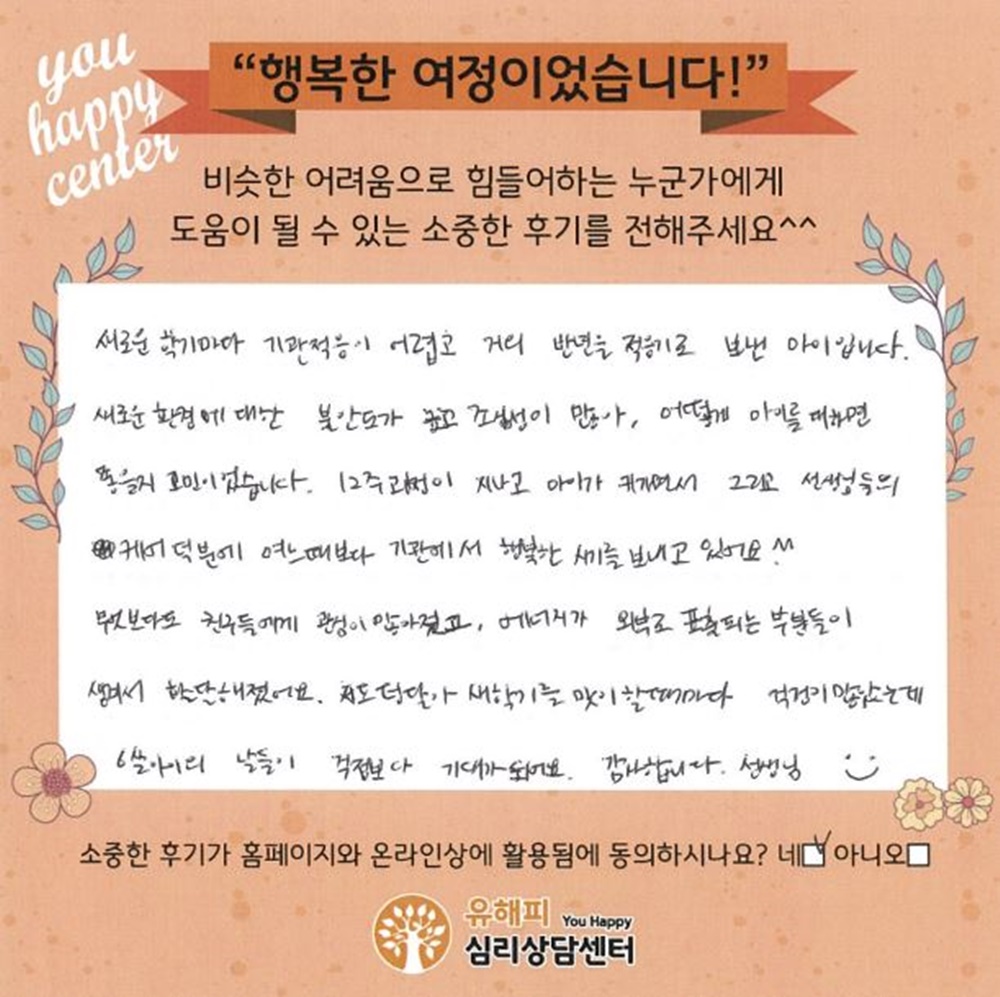 you
happy
center
“행복한 여정이었습니다!”
비슷한 어려움으로 힘들어하는 누군가에게
도움이 될 수 있는 소중한 후기를 전해주세요^^
새로운 학기마다 기관적응이 어렵고 거의 반년을 적응기로 보낸 아이입니다.
새로운 환경에 대한 불안도가 높고 조심성이 많아, 어떻게 아이를 대하면
좋을지 고민이었습니다. 12주과정이 지나고 아이가 커가면서 그리고 선생님들의
케어 덕분에 여느때보다 기관에서 행복한 시기를 보내고 있어요^^
무엇보다도 친구들에게 관심이 많아졌고, 에너지가 외부로 표출되는 부분들이
생겨서 활달해졌어요. 저도 덩달아 새학기를 맞이할때마다 걱정이 많았는데
6살아이의 날들이 걱정보다 기대가되어요. 감사합니다. 선생님
소중한 후기가 홈페이지와 온라인상에 활용됨에 동의하시나요? 네 아니오
유해피 You Happy
심리상담센터